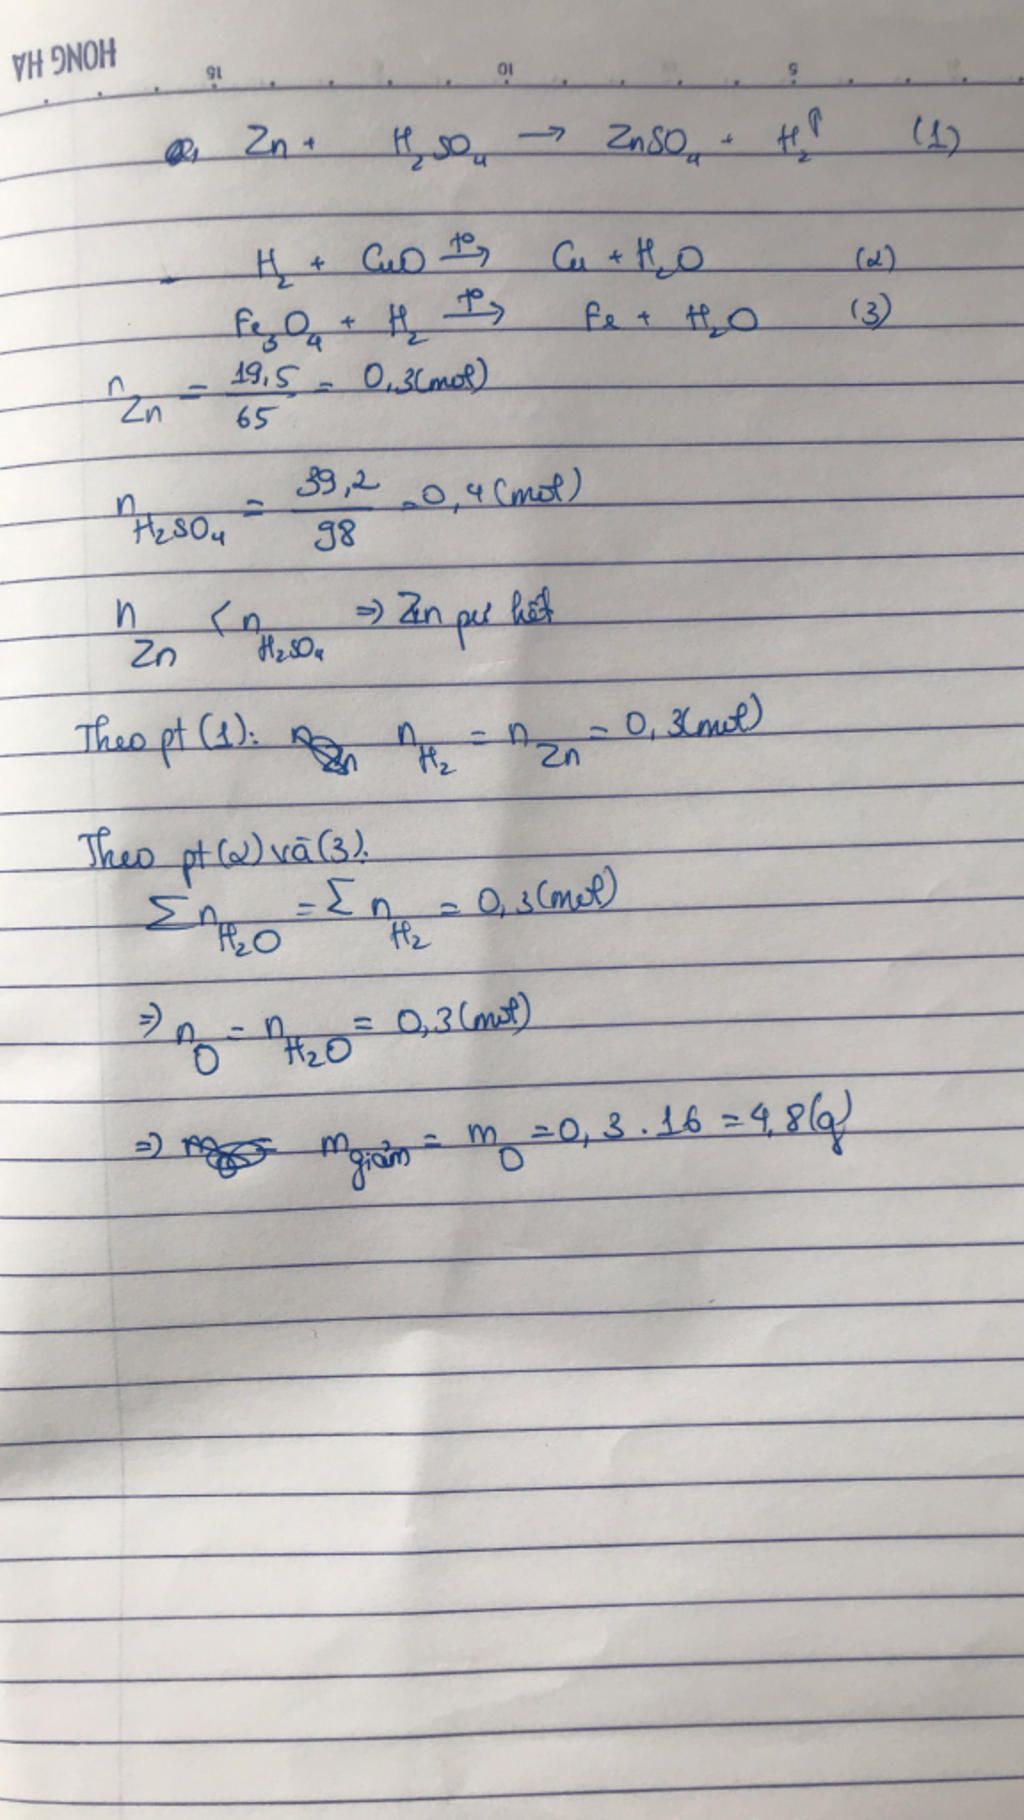 HONG HA
15 10 5
a, Zn + H₂SO₄ → ZnSO₄ + H₂↑ (1)
H₂ + CuO →(t°) Cu + H₂O (2)
Fe₃O₄ + H₂ →(t°) Fe + H₂O (3)
n_Zn = 19,5/65 = 0,3(mol)
n_H₂SO₄ = 39,2/98 = 0,4(mol)
n_Zn < n_H₂SO₄ ⇒ Zn pư hết
Theo pt (1): n_H₂ = n_Zn = 0,3(mol)
Theo pt (2) và (3):
Σn_H₂O = Σn_H₂ = 0,3(mol)
⇒ n_O = n_H₂O = 0,3(mol)
⇒ m_giảm = m_O = 0,3 . 16 = 4,8(g)